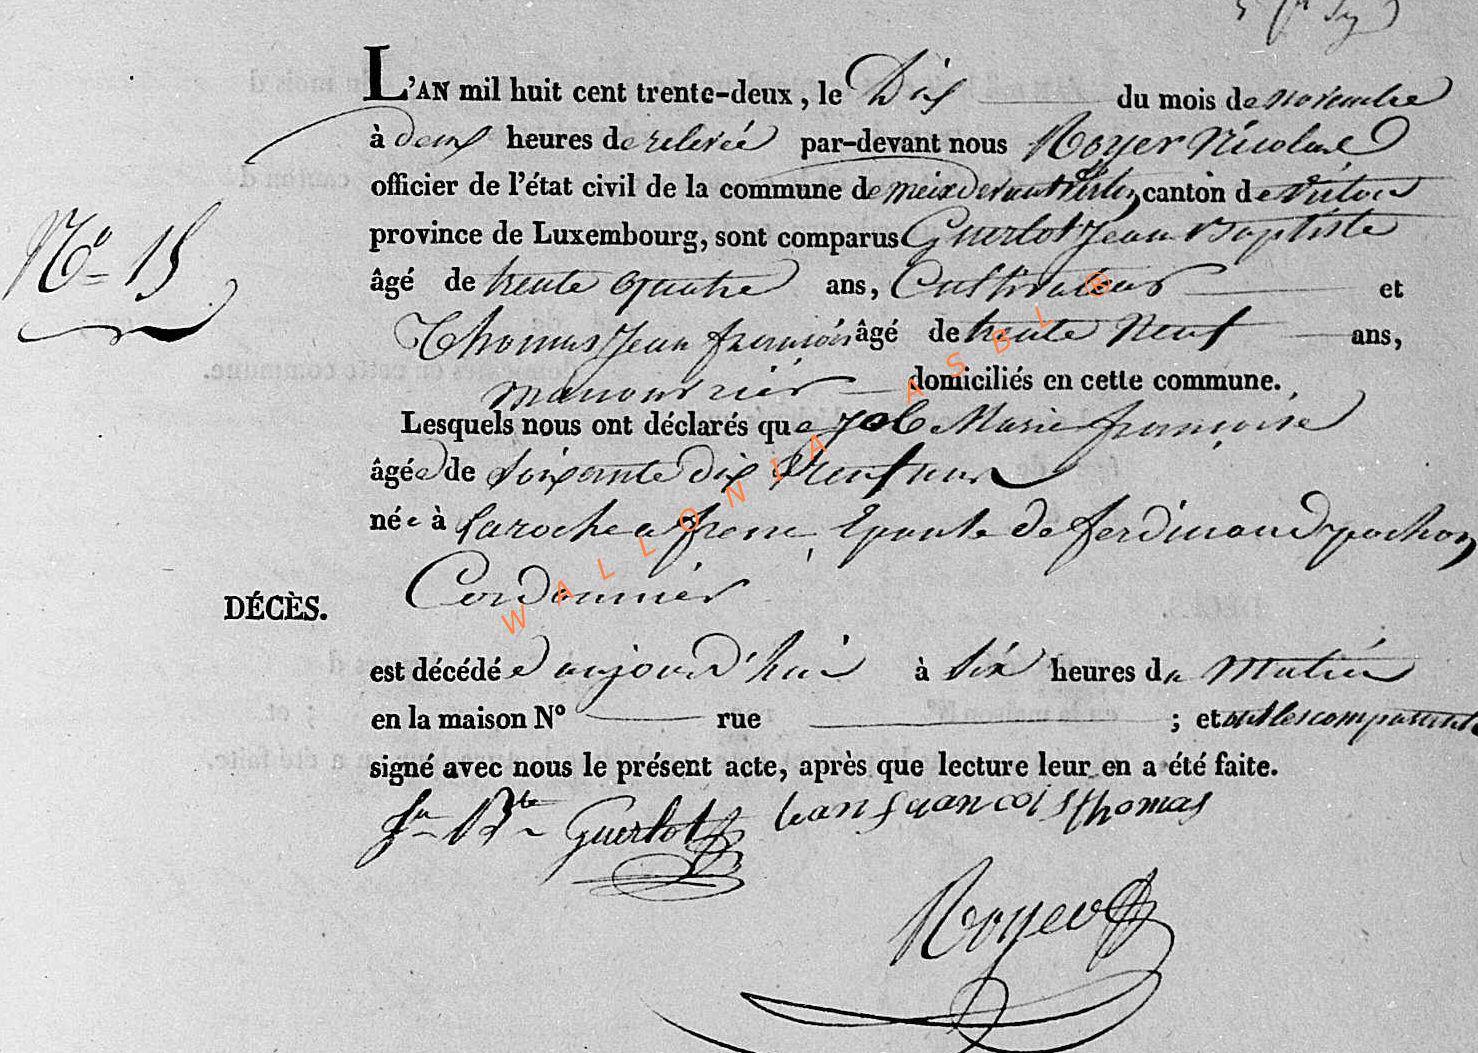 L'AN mil huit cent trente-deux, le Dix du mois de novembre
à deux heures de relevée par-devant nous Royer Nicolas
officier de l'état civil de la commune de meix devant virton canton de virton
province de Luxembourg, sont comparus Guerlot Jean Baptiste
N° 15
âgé de trente quatre ans, Cultivateur et
Thomas Jean françois âgé de trente Neuf ans,
manouvrier domiciliés en cette commune.
Lesquels nous ont déclarés que Job Marie françoise
âgée de soixante dix Neuf ans
née à laroche Epouse de ferdinand pochon
Cordonnier
DÉCÈS.
est décédée aujourd'hui à six heures du Matin
en la maison N° rue ; et ont les comparants
signé avec nous le présent acte, après que lecture leur en a été faite.
Jn Bte Guerlot Jean francois thomas
Royer
WALLONIA ASBL ®